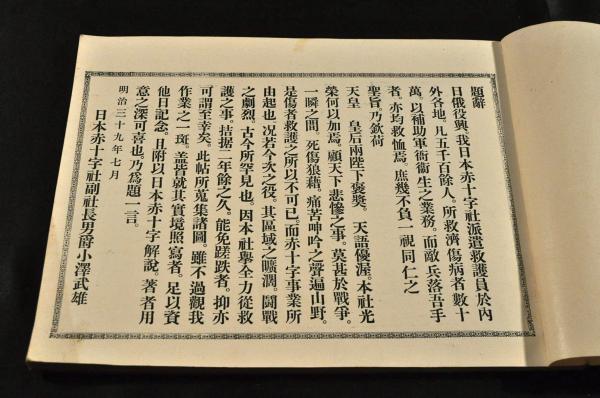 題辭
日俄役興。我日本赤十字社派遣救護員於內
外各地。凡五千百餘人。所救濟傷病者數十
萬。以補助軍衙衞生之業務。而敵兵落吾手
者。亦均救恤焉。庶幾不負一視同仁之
聖旨。乃欽荷
天皇 皇后兩陛下褒奬。 天語優渥。本社光
榮何以加焉。顧天下悲慘之事。莫甚於戰爭。
一瞬之間。死傷狼藉。痛苦呻吟之聲遍山野。
是傷者救護之所以不可已。而赤十字事業所
由起也。况若今次之役。其區域之曠濶。鬪戰
之劇烈。古今所罕見也。因本社擧全力從救
護之事。拮据二年餘之久。能免蹉跌者。抑亦
可謂至幸矣。此帖所蒐集諸圖。雖不過觀我
作業之一斑。蓋皆就其實境照寫者。足以資
他日記念。且附以日本赤十字解說。著者用
意之深可喜也。乃爲題一言。
明治三十九年七月
日本赤十字社副社長男爵小澤武雄